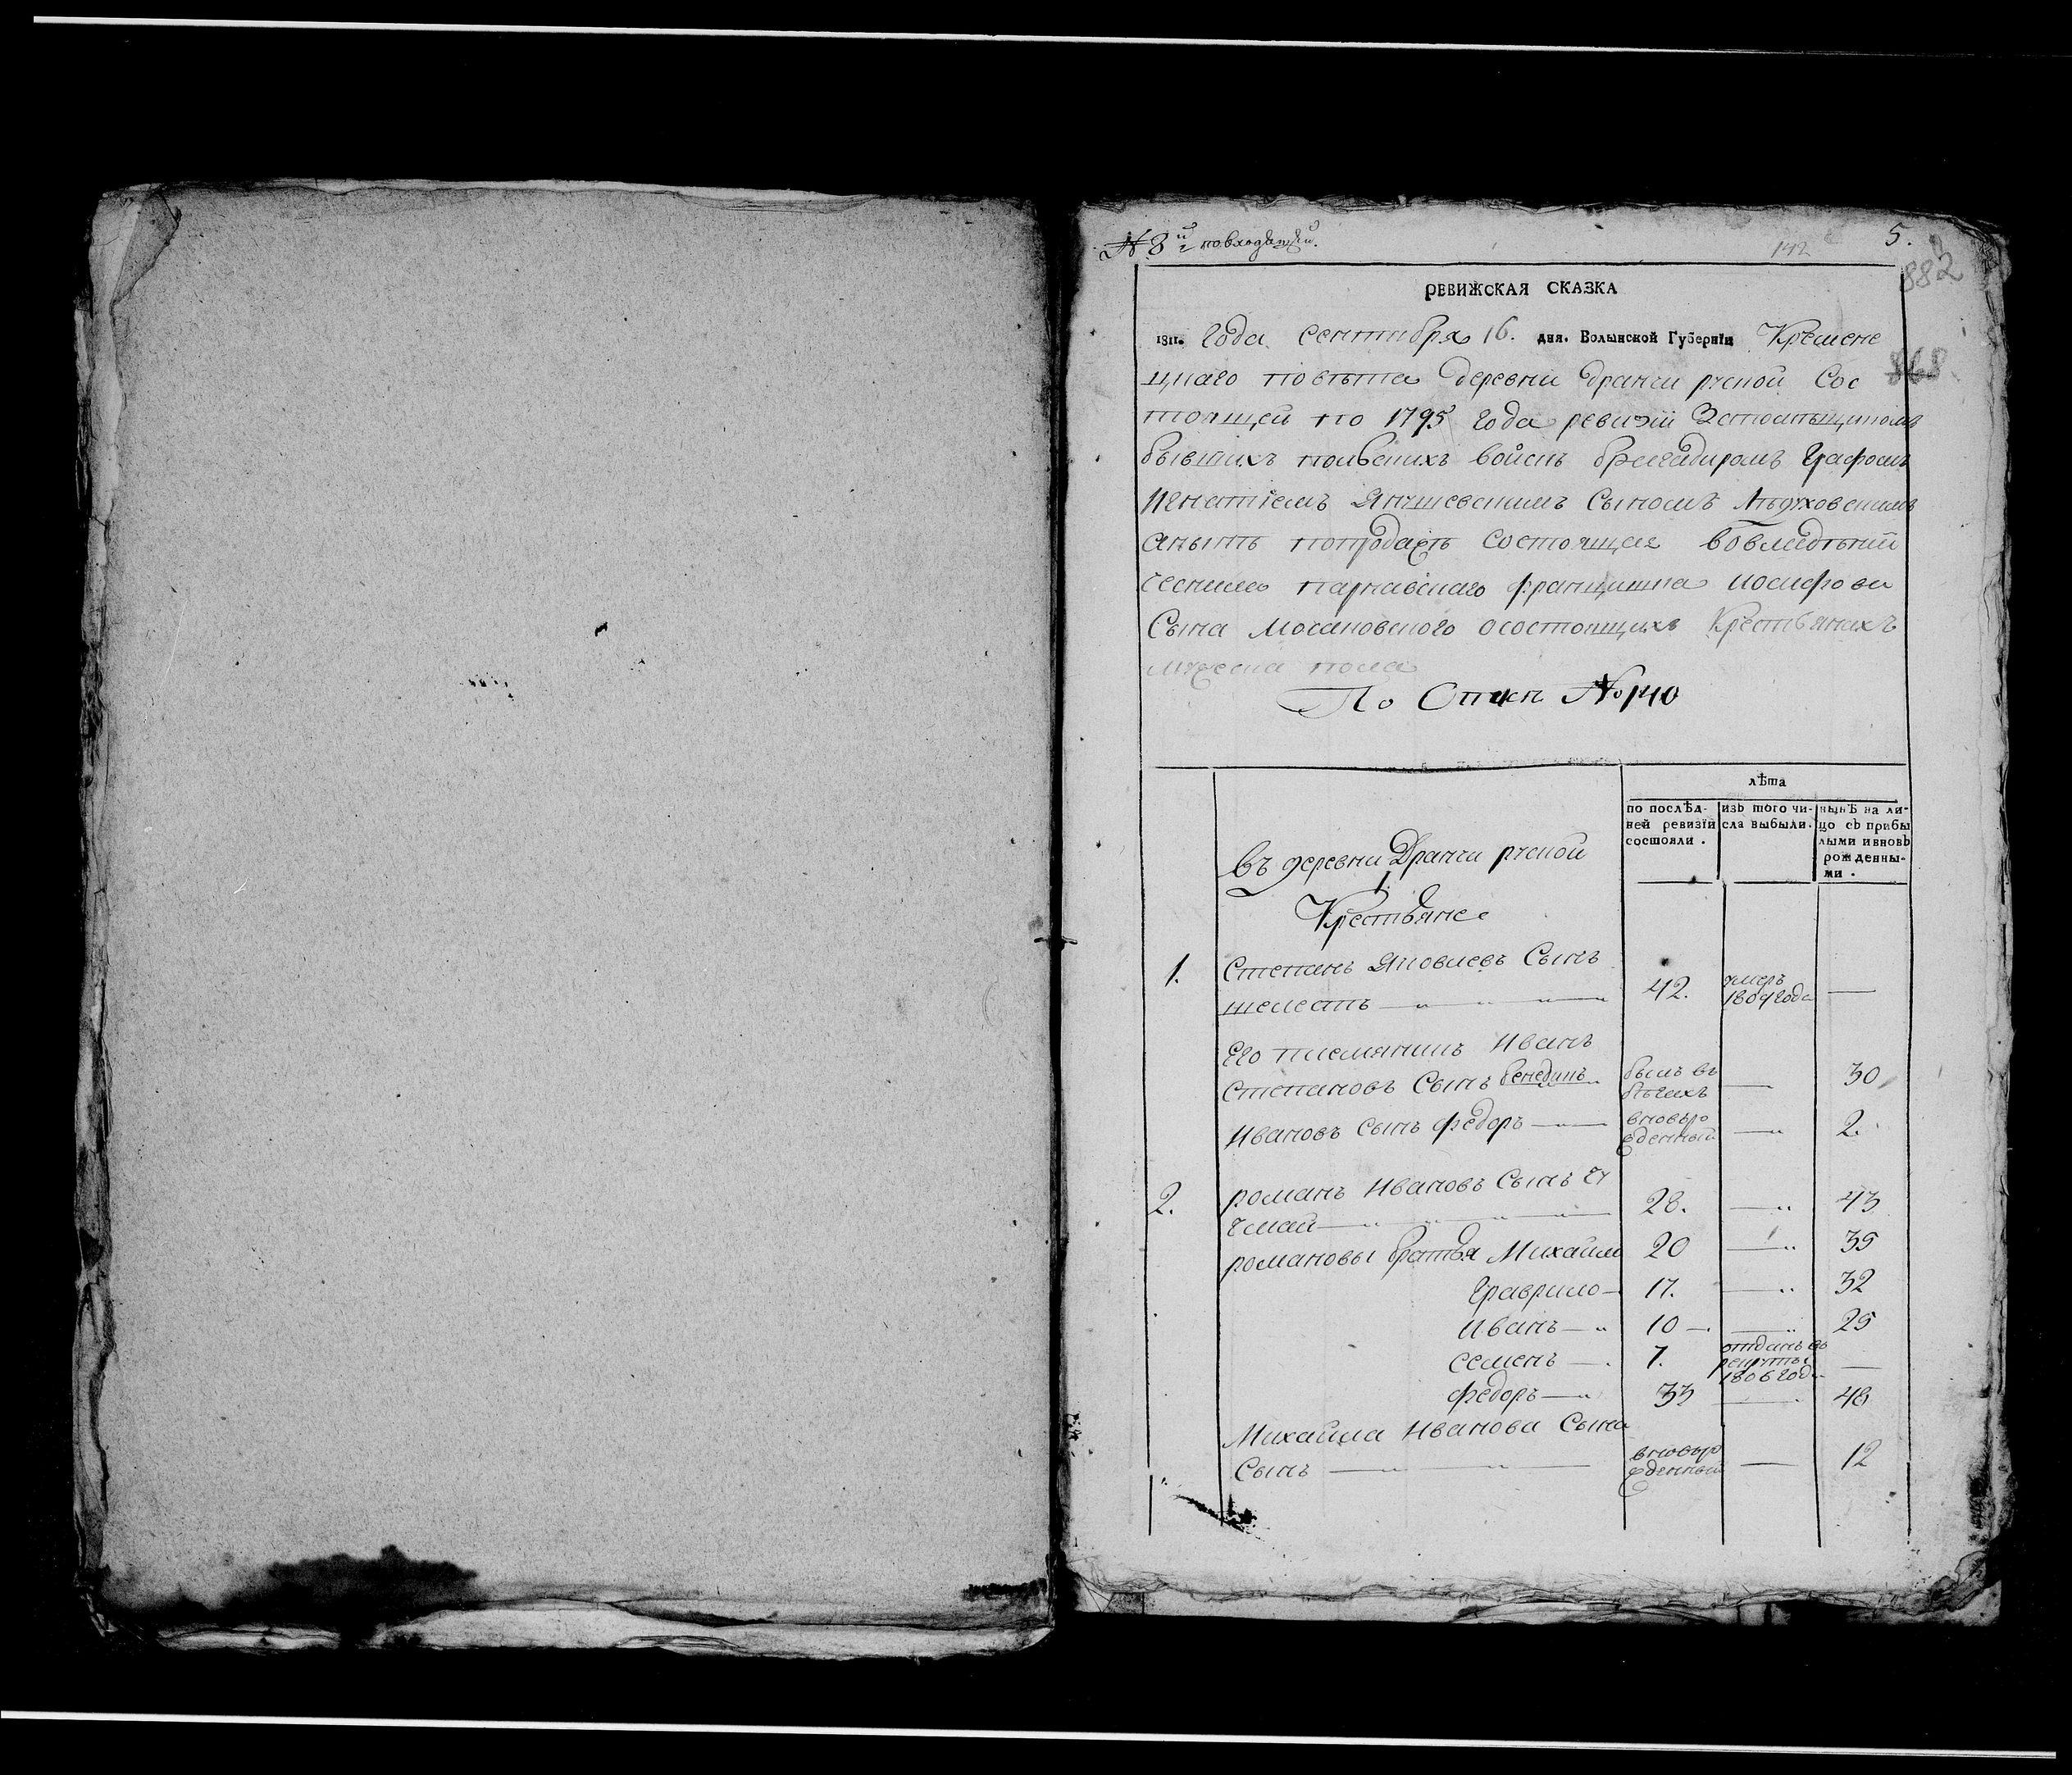 № 8й повходящей.
5.
142
882
РЕВИЖСКАЯ СКАЗКА
1811. года сентября 16. дня. Волынской Губерніи Кремене
868
цкаго повѣта деревни дранчи руской Сос
тоящей по 1795 года ревизіи
бывшихъ польскихъ войскъ бригадиромъ Графомъ
Игнатіемъ Янушевскимъ Сыномъ Лѣдуховскимъ
анынѣ попродажѣ состоящая вовладѣніи
парнавскаго францишка иосифова
Сына Мосаковского осостоящихъ Крестьянахъ
мужеска пола
По Описи №140
лѣта
по послѣд-
ней ревизіи
состояли.
изъ того чи-
сла выбыли.
нынѣ на ли-
цо съ прибы
лыми ивновь
рожденны-
ми.
въ деревни Дранчи руской
1.
Крестьяне
1. Степанъ Яковлевъ Сынъ
шелестъ 42. умеръ 1809 года —
Его племянникъ Иванъ
Степановъ Сынъ былъ въ бѣгахъ — 30
Ивановъ сынъ федоръ — вновьро жденный — 2.
2. романъ Ивановъ Сынъ
28. — 43
романовы братья Михайло 20 — 35
Гаврило — 17. — 32
Иванъ — 10 — 25
семенъ — 7. отданъ въ рекруты 1806 года —
федоръ — 33 — 48
Михайла Иванова Сына
Сынъ — вновьро жденный — 12